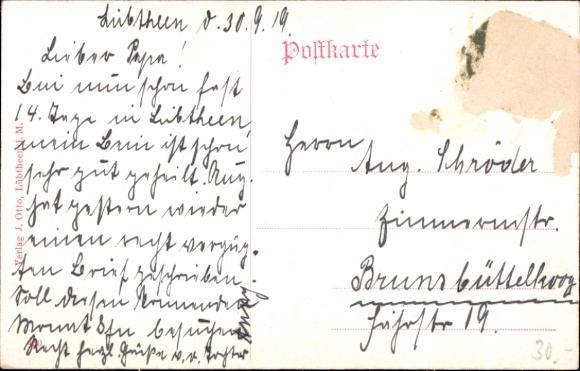 Lübtheen d. 30.9.19.
Lieber Papa!
Bin nun schon fast
14. Tage in Lübtheen,
mein Bein ist schon
sehr gut geheilt. Aug.
hat gestern wieder
einen recht vergüg-
ten Brief geschrieben.
Soll diesen kommenden
Monat Ihn besuchen.
Recht herzl. Grüße v. d. Tochter
Postkarte
Herrn
Aug. Schröder
Zimmermstr.
Brunsbüttelkoog
Fährstr 19.
Verlag J. Otto, Lübtheen i. M.
30.-